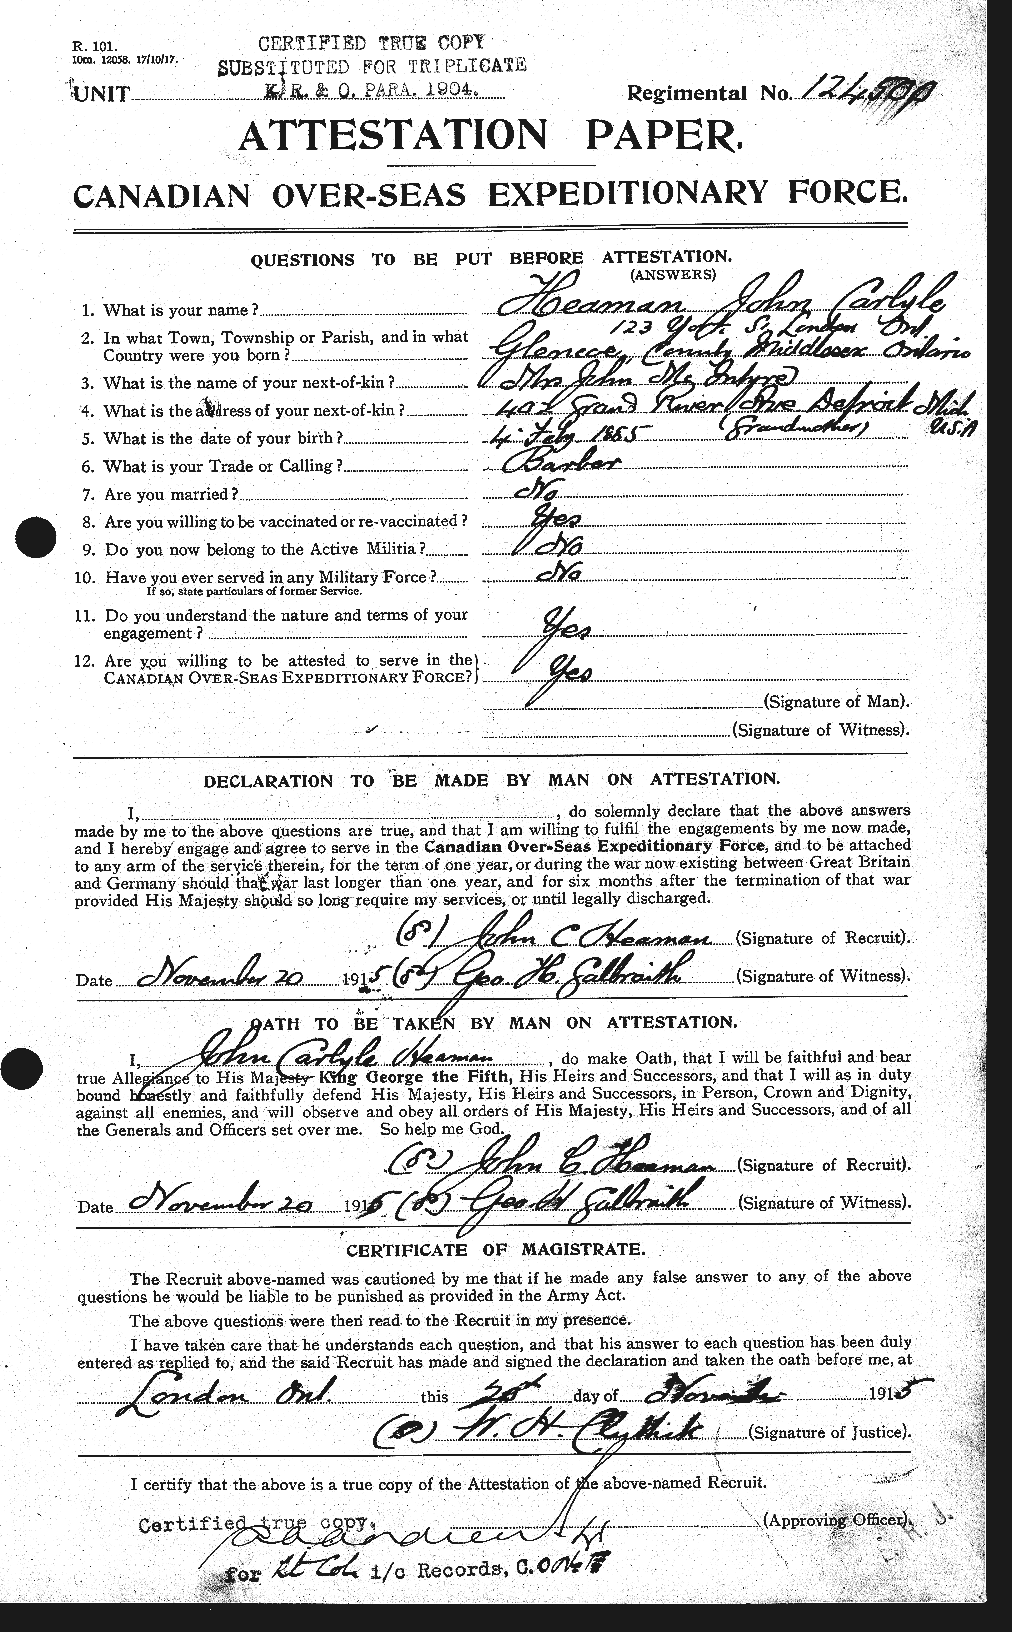 R. 101.
10m. 12058. 17/10/17.
CERTIFIED TRUE COPY
SUBSTITUTED FOR TRIPLICATE
K.R. & O. PARA. 1904.
UNIT
Regimental No. 124500
ATTESTATION PAPER.
CANADIAN OVER-SEAS EXPEDITIONARY FORCE.
QUESTIONS TO BE PUT BEFORE ATTESTATION.
(ANSWERS)
1. What is your name? Heaman John Carlyle
123 York St London Ont
2. In what Town, Township or Parish, and in what
Country were you born? Glencoe, County Middlesex Ontario
3. What is the name of your next-of-kin? Mrs John McIntyre
4. What is the address of your next-of-kin? 402 Grand River Ave Detroit Mich
(Grandmother) U.S.A
5. What is the date of your birth? 4 Feby 1885
6. What is your Trade or Calling? Barber
7. Are you married? No
8. Are you willing to be vaccinated or re-vaccinated? Yes
9. Do you now belong to the Active Militia? No
10. Have you ever served in any Military Force? No
If so, state particulars of former Service.
11. Do you understand the nature and terms of your
engagement? Yes
12. Are you willing to be attested to serve in the
CANADIAN OVER-SEAS EXPEDITIONARY FORCE? Yes
(Signature of Man).
(Signature of Witness).
DECLARATION TO BE MADE BY MAN ON ATTESTATION.
I, , do solemnly declare that the above answers
made by me to the above questions are true, and that I am willing to fulfil the engagements by me now made,
and I hereby engage and agree to serve in the Canadian Over-Seas Expeditionary Force, and to be attached
to any arm of the service therein, for the term of one year, or during the war now existing between Great Britain
and Germany should that war last longer than one year, and for six months after the termination of that war
provided His Majesty should so long require my services, or until legally discharged.
(S) John C Heaman (Signature of Recruit).
Date November 20 1915 (S) Geo. H. Galbraith (Signature of Witness).
OATH TO BE TAKEN BY MAN ON ATTESTATION.
I, John Carlyle Heaman , do make Oath, that I will be faithful and bear
true Allegiance to His Majesty King George the Fifth, His Heirs and Successors, and that I will as in duty
bound honestly and faithfully defend His Majesty, His Heirs and Successors, in Person, Crown and Dignity,
against all enemies, and will observe and obey all orders of His Majesty, His Heirs and Successors, and of all
the Generals and Officers set over me. So help me God.
(S) John C. Heaman (Signature of Recruit).
Date November 20 1915 (S) Geo. H Galbraith (Signature of Witness).
CERTIFICATE OF MAGISTRATE.
The Recruit above-named was cautioned by me that if he made any false answer to any of the above
questions he would be liable to be punished as provided in the Army Act.
The above questions were then read to the Recruit in my presence.
I have taken care that he understands each question, and that his answer to each question has been duly
entered as replied to, and the said Recruit has made and signed the declaration and taken the oath before me, at
London Ont. this 20th day of November 1915
(S) W. H. (Signature of Justice)
I certify that the above is a true copy of the Attestation of the above-named Recruit.
Certified true copy. (Approving Officer)
for Lt Col. i/c Records, C.O.